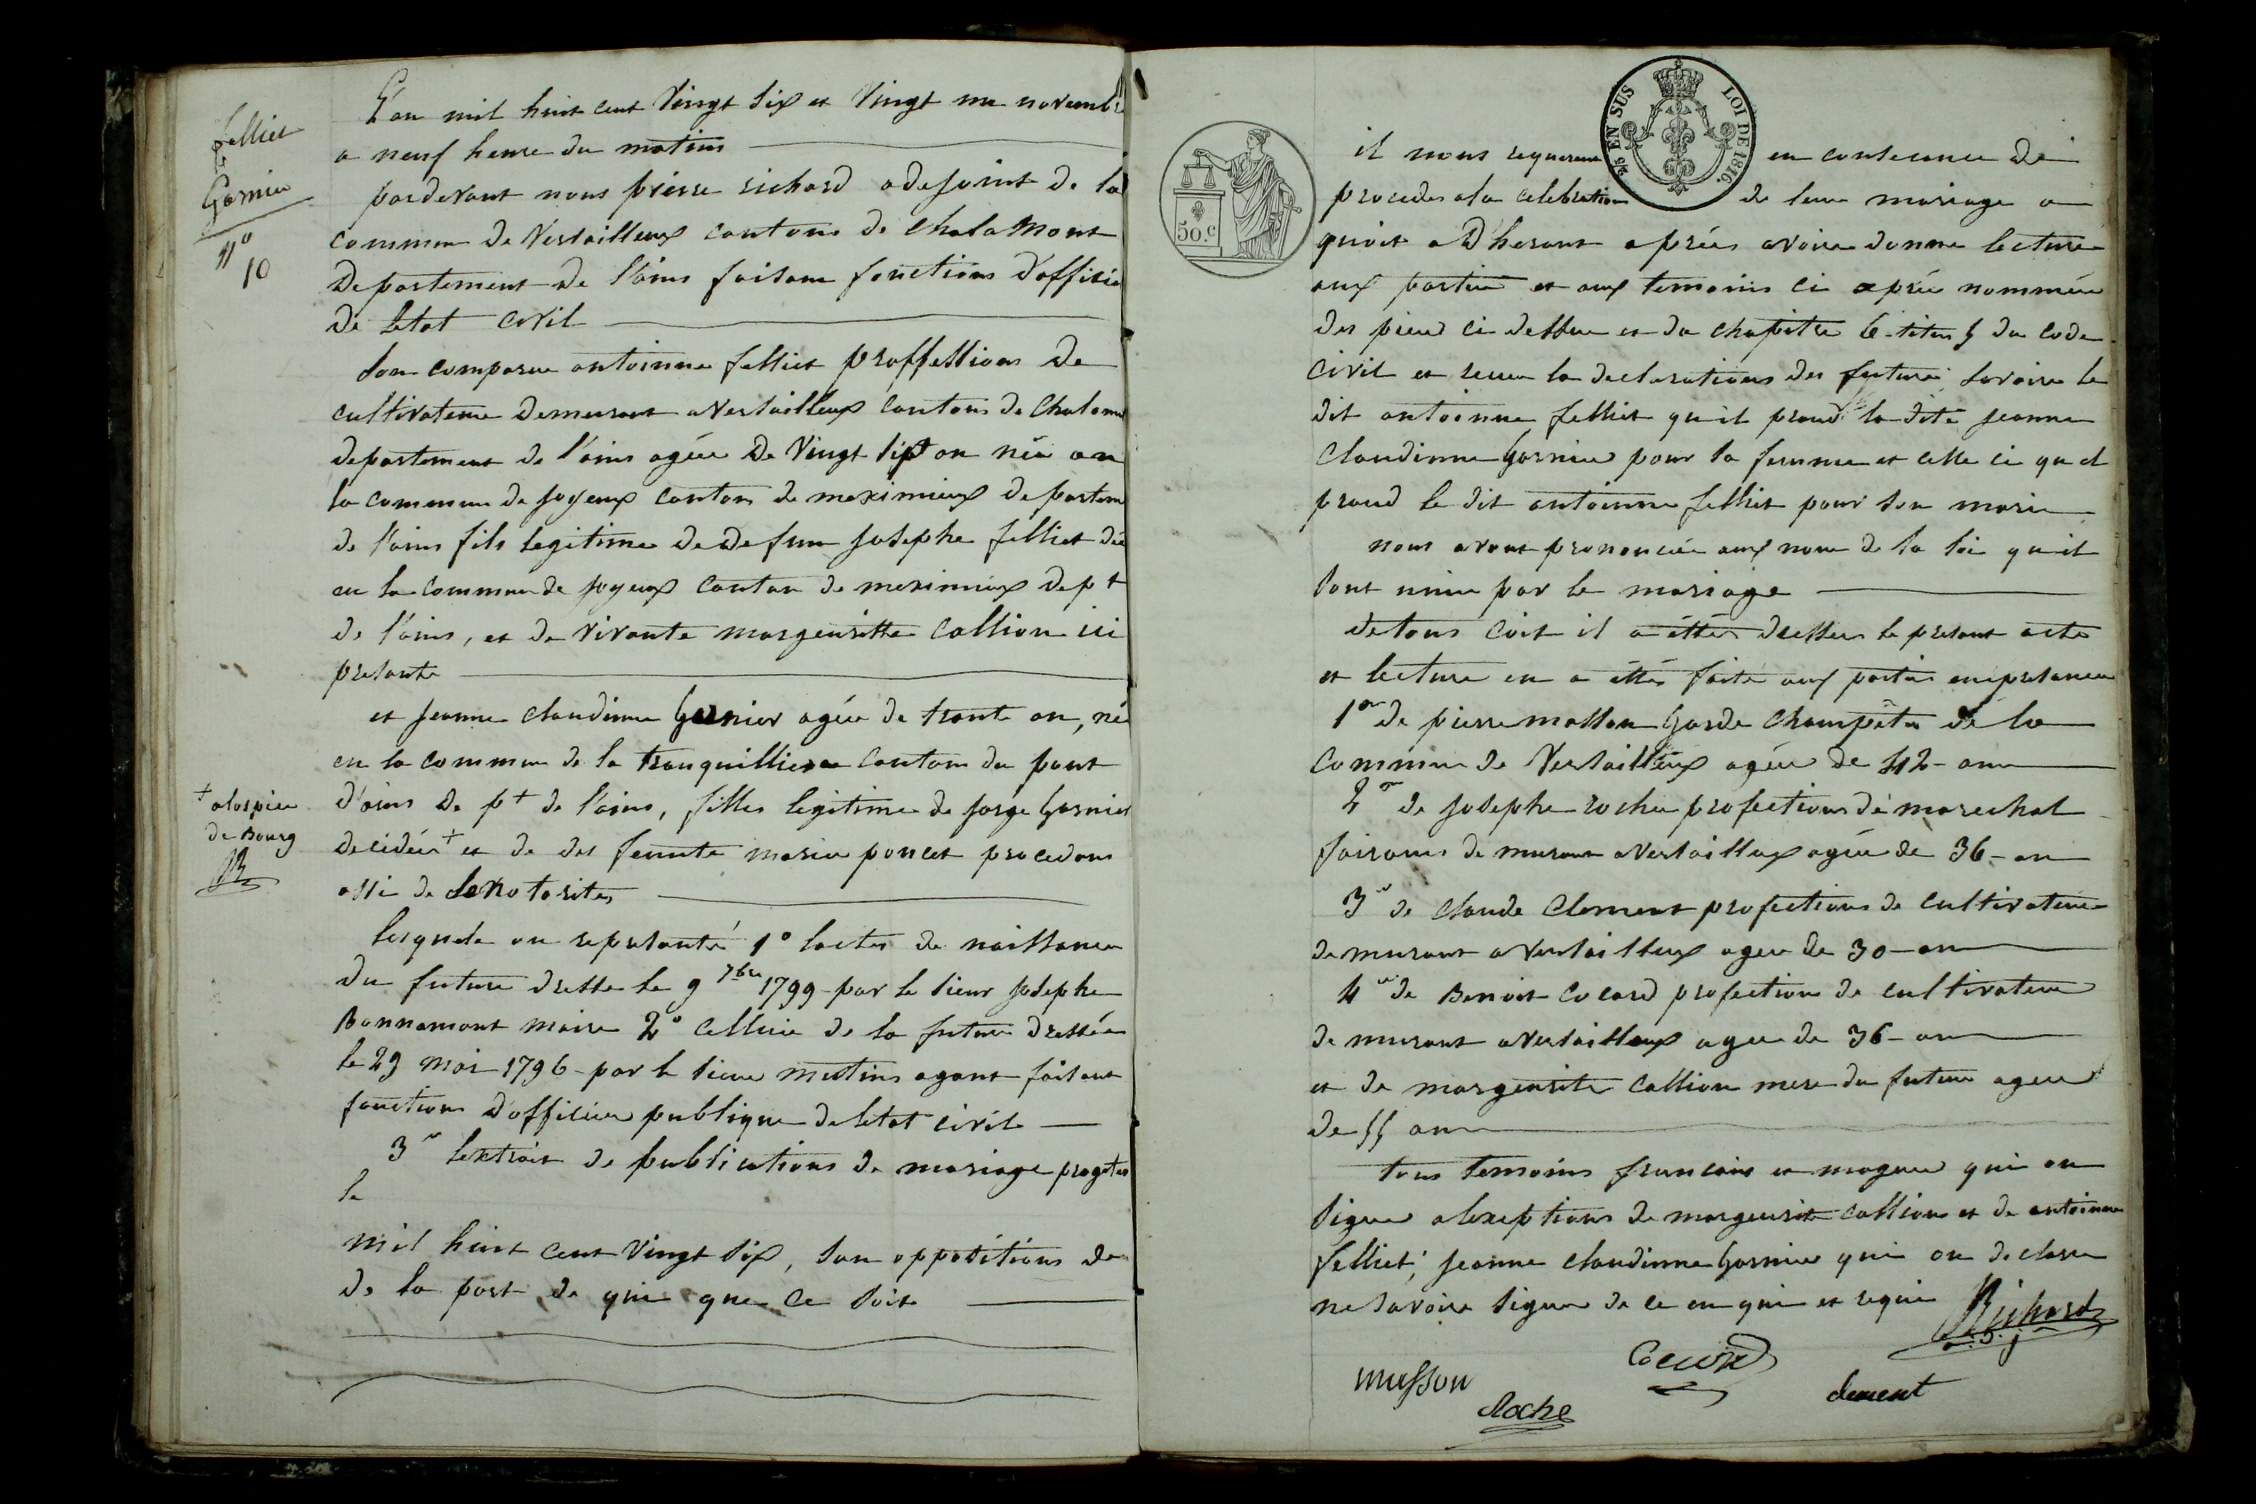 felliet
et
Garnier
n° 10
L'an mil huit cent vingt six et vingt un novembre
a neuf heure du matins
pardevant nous pierre richard adejoint de la
commune de Versailleux cantons de chalamont
departement de l'ains faisant fonctions d'officie
de letat civil
son comparue antoinne felliet proffessions de
cultivateure demeurant a versailleux cantons de chalamo
departement de l'ains agée de vingt sipt an née an
la commune de joyeux canton de meximieux departem
de l'ains fils legitime de defunt josephe felliet décé
en la commune de joyeux canton de meximieux dept
de l'ains, et de vivante margeuritte callion ici
presante
et jeanne claudinne Garnier agée de trante an, né
en la commune de la tranquilliere cantom du pont
d'ains dept de l'ains, filles legitime de jorge Garnier
decidées + et de def funte marie poncet procedans
+ alospice
de Bourg
R
assi de de notorites
lesquele on represanté 1° lactes de naissance
du future dressé le 9 7bre 1799 par le sieur josephe
Bonnamont maire 2° celluie de la future dressée
le 29 mai 1796 par le sieure mistins agant faisant
fonctions d'officiere publique de letat civile
3° lextrait de publications de mariage progetes
le
mil huit cent vingt six, san oppositions de
de la part de qui que ce soit
4/8 EN SUS
LOI DE 1816.
50.c
il nous requerent en contecance de
proceder ala celebration de leure mariage a
quoit adherant aprèes avoire donne lecture
aux partie et aux temoins ci aprèe nommée
des piece ci dessue et du chapitre 6 titre 5 du code
civil et recue la declarations des future savoire le
dit antoinne felliet qu il prand la dite jeanne
claudinne Garnier pour la femme et celle ci qu el
prand le dit antoinne felliet pour son marie
nous avont prononcée aux nom de la loi qu il
sont unie par le mariage
detous coit il a êttés dresser le presant acte
et lecture en a êttés faite aux parties en presance
1er de pierre masson Garde champêtre de la
commune de Versailleux agée de 42 an
2er de josephe rocher profections de marechal
fairans demurant a versailleux agée de 36 an
3° de claude clement profections de cultivateure
demurant a versailleux agee de 30 an
4° de Benoit cocard profections de cultivateure
demurant a versailleux agee de 36 an
et de margeurite callion mere du future agee
de 55 an
tous temoins francais et mageure qui on
signer alexeptions de margeurite callion et de antoinne
felliet, jeanne claudinne Garnier qui on declare
ne savoire signer de ce en qui et requie
Richard
adj
musson
Cocard
Roche
clement